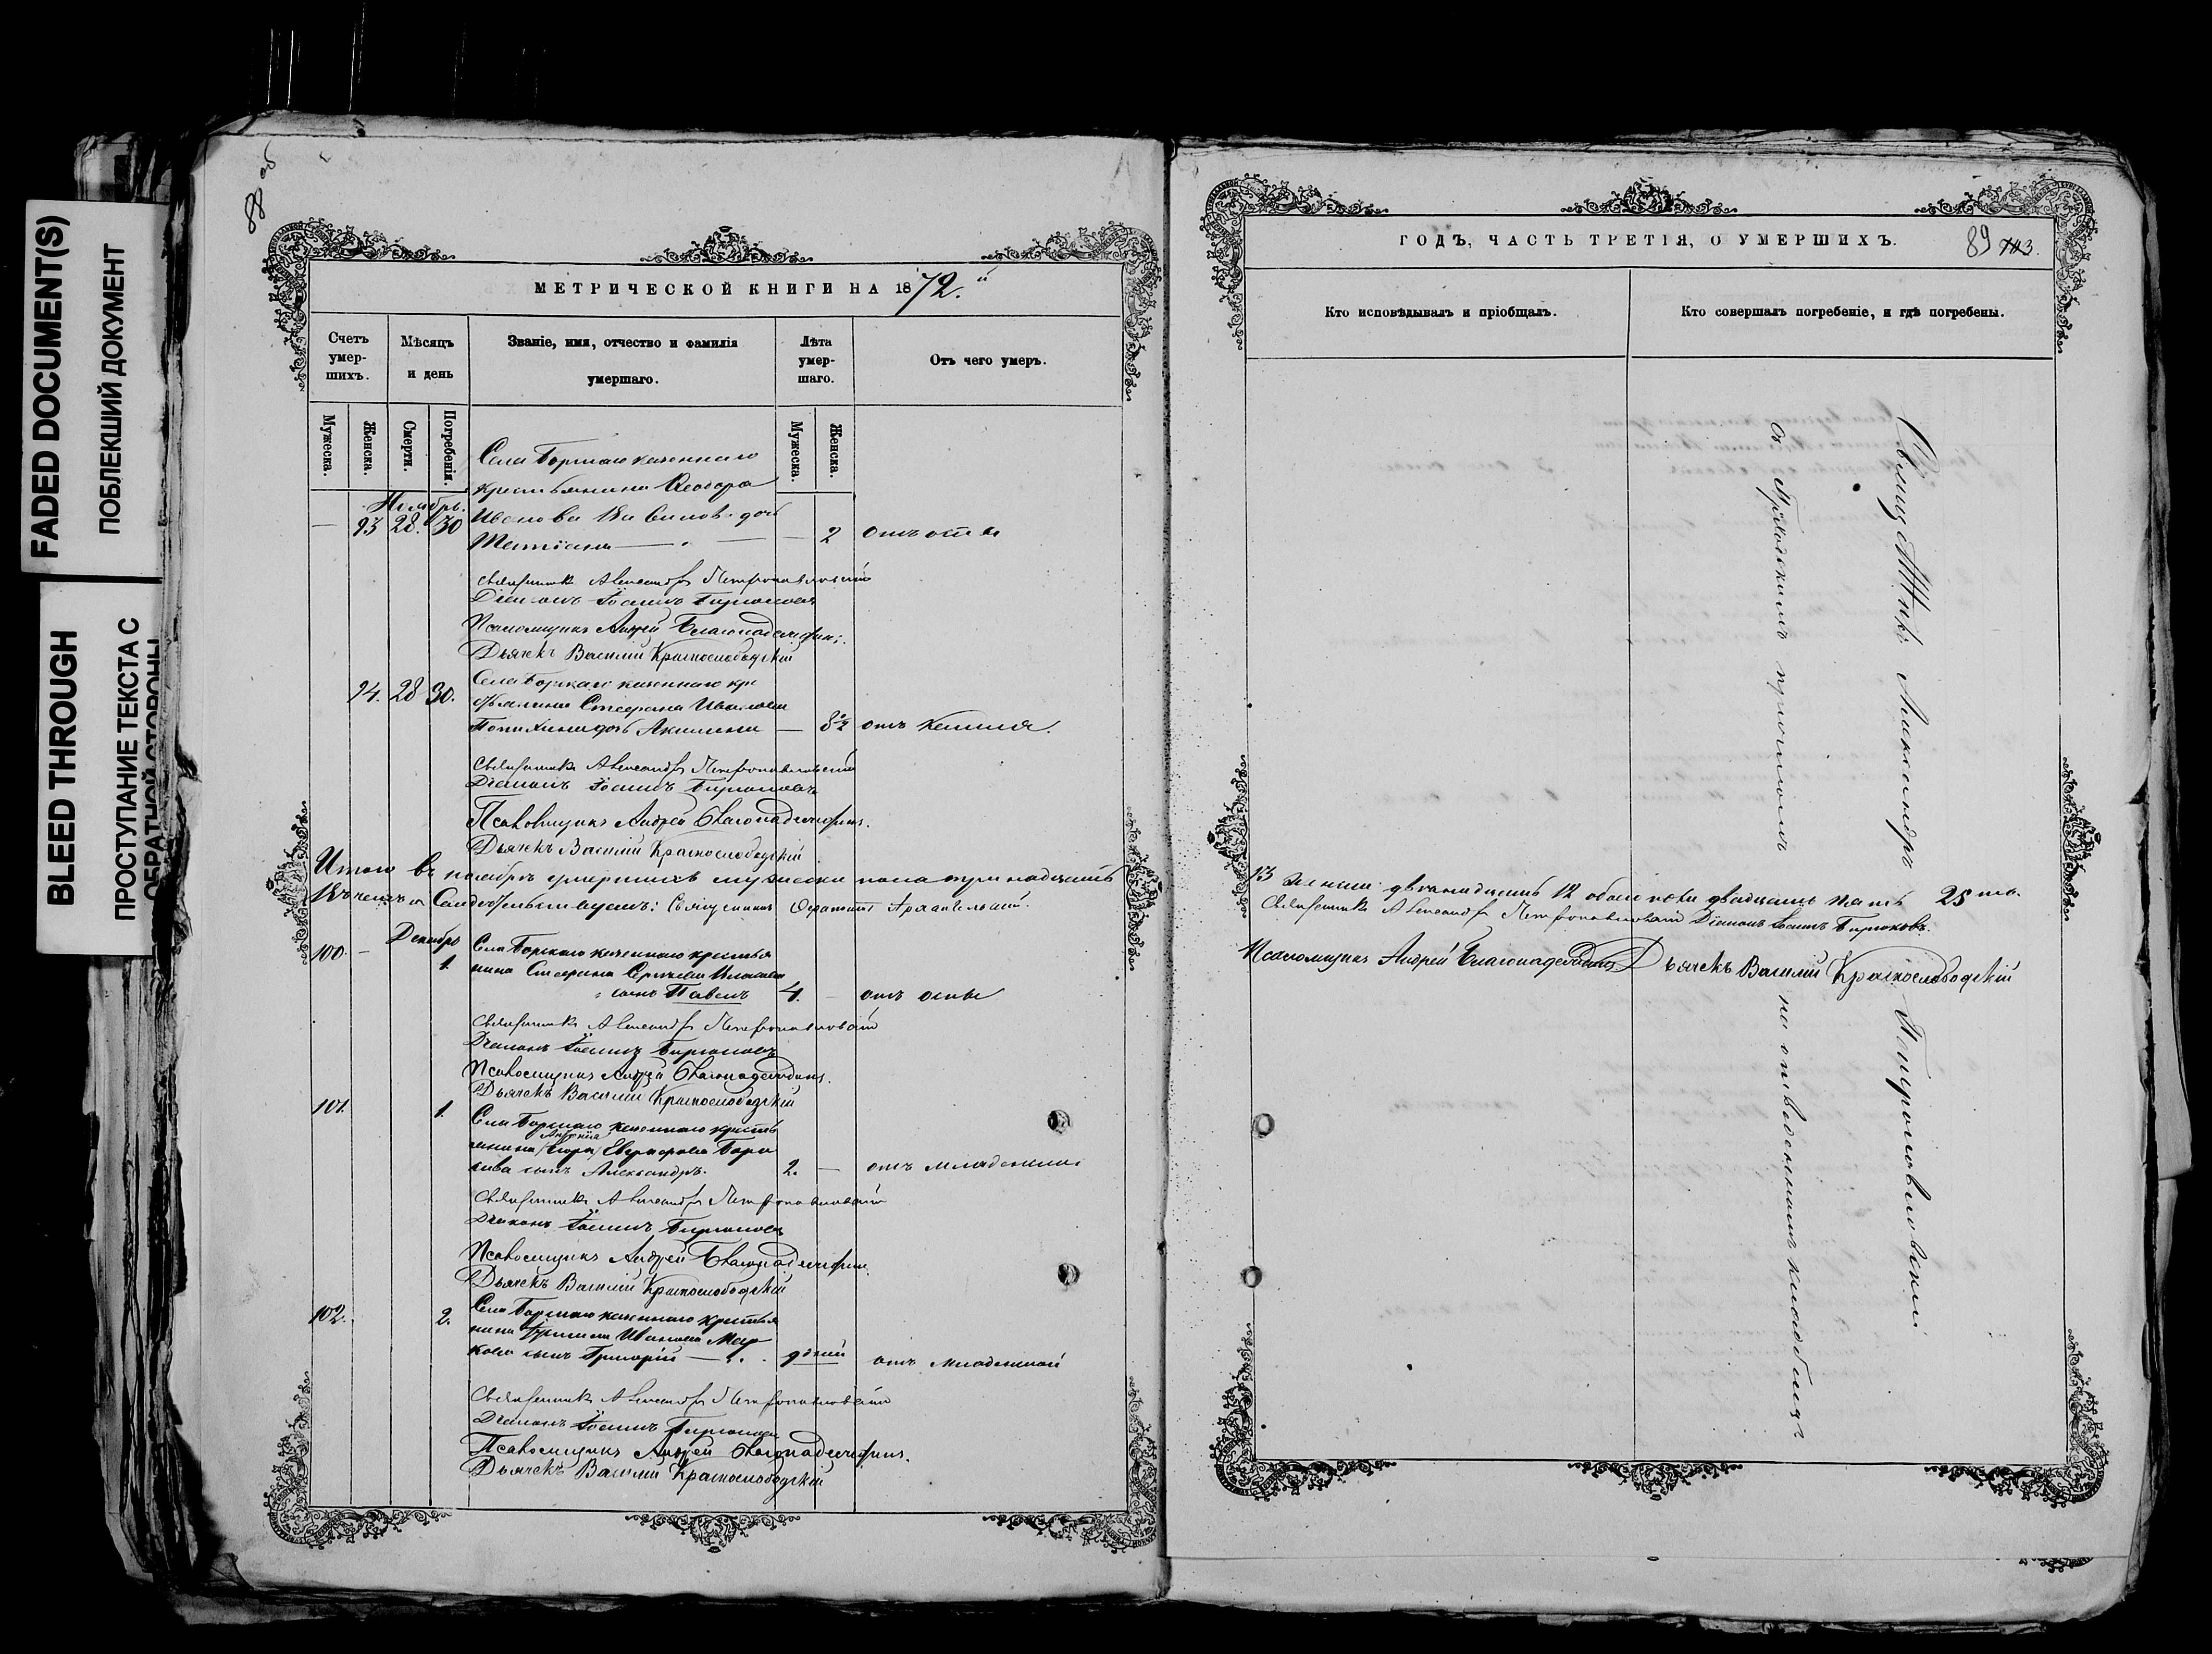 FADED DOCUMENT(S)
ПОБЛЕКШИЙ ДОКУМЕНТ
BLEED THROUGH
ПРОСТУПАНИЕ ТЕКСТА С
ОБРАТНОЙ СТОРОНЫ
88 об
МЕТРИЧЕСКОЙ КНИГИ НА 1872.й
Счетъ умер-шихъ.
Мѣсяцъ и день
Званіе, имя, отчество и фамилія умершаго.
Лѣта умер-шаго.
Отъ чего умеръ.
Мужеска.
Женска.
Смерти.
Погребенія.
Мужеска.
Женска.
Села Борскаго казеннаго
крестьянина Ѳеодора
Ноябрь.
— 93 28. 30 Иванова дочь
Татіана — — 2 отъ оспы
Священникъ Александръ Петропавловскій
Діаконъ Іоаннъ Бирюковъ
Псаломщикъ Андрей Благонадеждинъ.
Дьячекъ Василій Краснослободскій
94. 28 30. Села Борскаго казеннаго кре
стьянина Стефана Иванова
дочь Акилина — отъ кашля.
Священникъ Александръ Петропавловскій
Діаконъ Іоаннъ Бирюковъ
Псаломщикъ Андрей Благонадеждинъ.
Дьячекъ Василій Краснослободскій
Итого въ ноябрѣ умершихъ мужеска пола тринадцать
Священникъ Архангельскій
Декабрь
100. — 1. Села Борскаго казеннаго крестья
нина Стефана Сергѣева
сынъ Павелъ 4. — отъ оспы
Священникъ Александръ Петропавловскій
Діаконъ Іоаннъ Бирюковъ
Псаломщикъ Андрей Благонадеждинъ.
Дьячекъ Василій Краснослободскій
101. 1. Села Борскаго казеннаго кресть
янина Евграфова Бори
сова сынъ Александръ. 2. — отъ младенской
Священникъ Александръ Петропавловскій
Діаконъ Іоаннъ Бирюковъ
Псаломщикъ Андрей Благонадеждинъ.
Дьячекъ Василій Краснослободскій
102. 2. Села Борскаго казеннаго крестья
нина Иванова Мар
кова сынъ Григорій — дней отъ младенской
Священникъ Александръ Петропавловскій
Діаконъ Іоаннъ Бирюковъ
Псаломщикъ Андрей Благонадеждинъ.
Дьячекъ Василій Краснослободскій
ГОДЪ, ЧАСТЬ ТРЕТІЯ, О УМЕРШИХЪ.
89 103.
Кто исповѣдывалъ и пріобщалъ.
Кто совершалъ погребеніе, и гдѣ погребены.
Свящ. Александръ Петропавловскій
съ Приходскимъ причтомъ на отведенномъ кладбищѣ
13 женска двѣнадцать 12 обоего пола двадцать пять 25ть.
Священникъ Александръ Петропавловскій Діаконъ Іоаннъ Бирюковъ.
Псаломщикъ Андрей Благонадеждинъ Дьячекъ Василій Краснослободскій